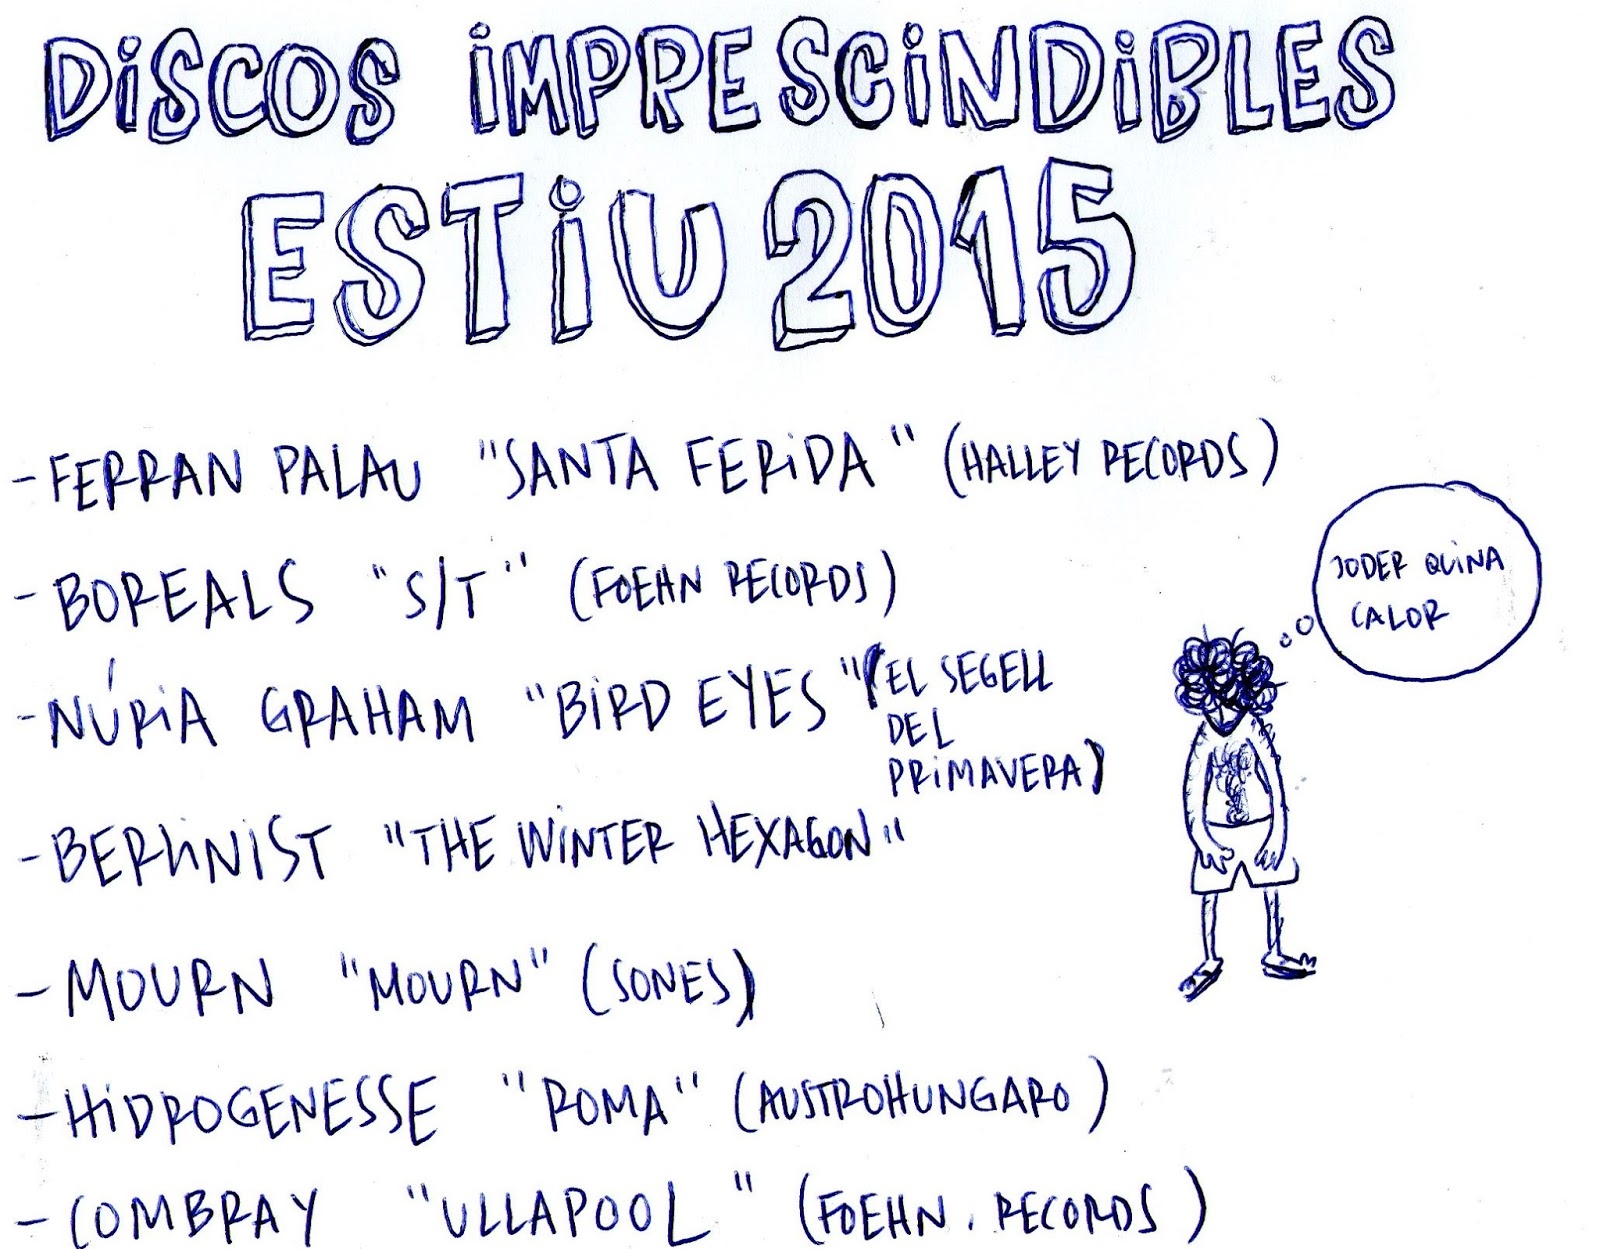 DiSCOS iMPRESCiNDiBLES
ESTiU 2015
- FERRAN PALAU "SANTA FERiDA" (HALLEY RECORDS)
- BOREALS "S/T" (FOEHN RECORDS)
- NÚRiA GRAHAM "BiRD EYES" (EL SEGELL
DEL
PRiMAVERA)
- BERLiNiST "THE WiNTER HEXAGON"
- MOURN "MOURN" (SONES)
- HiDROGENESSE "ROMA" (AUSTROHUNGARO)
- COMBRAY "ULLAPOOL" (FOEHN. RECORDS)
JODER QUiNA
CALOR